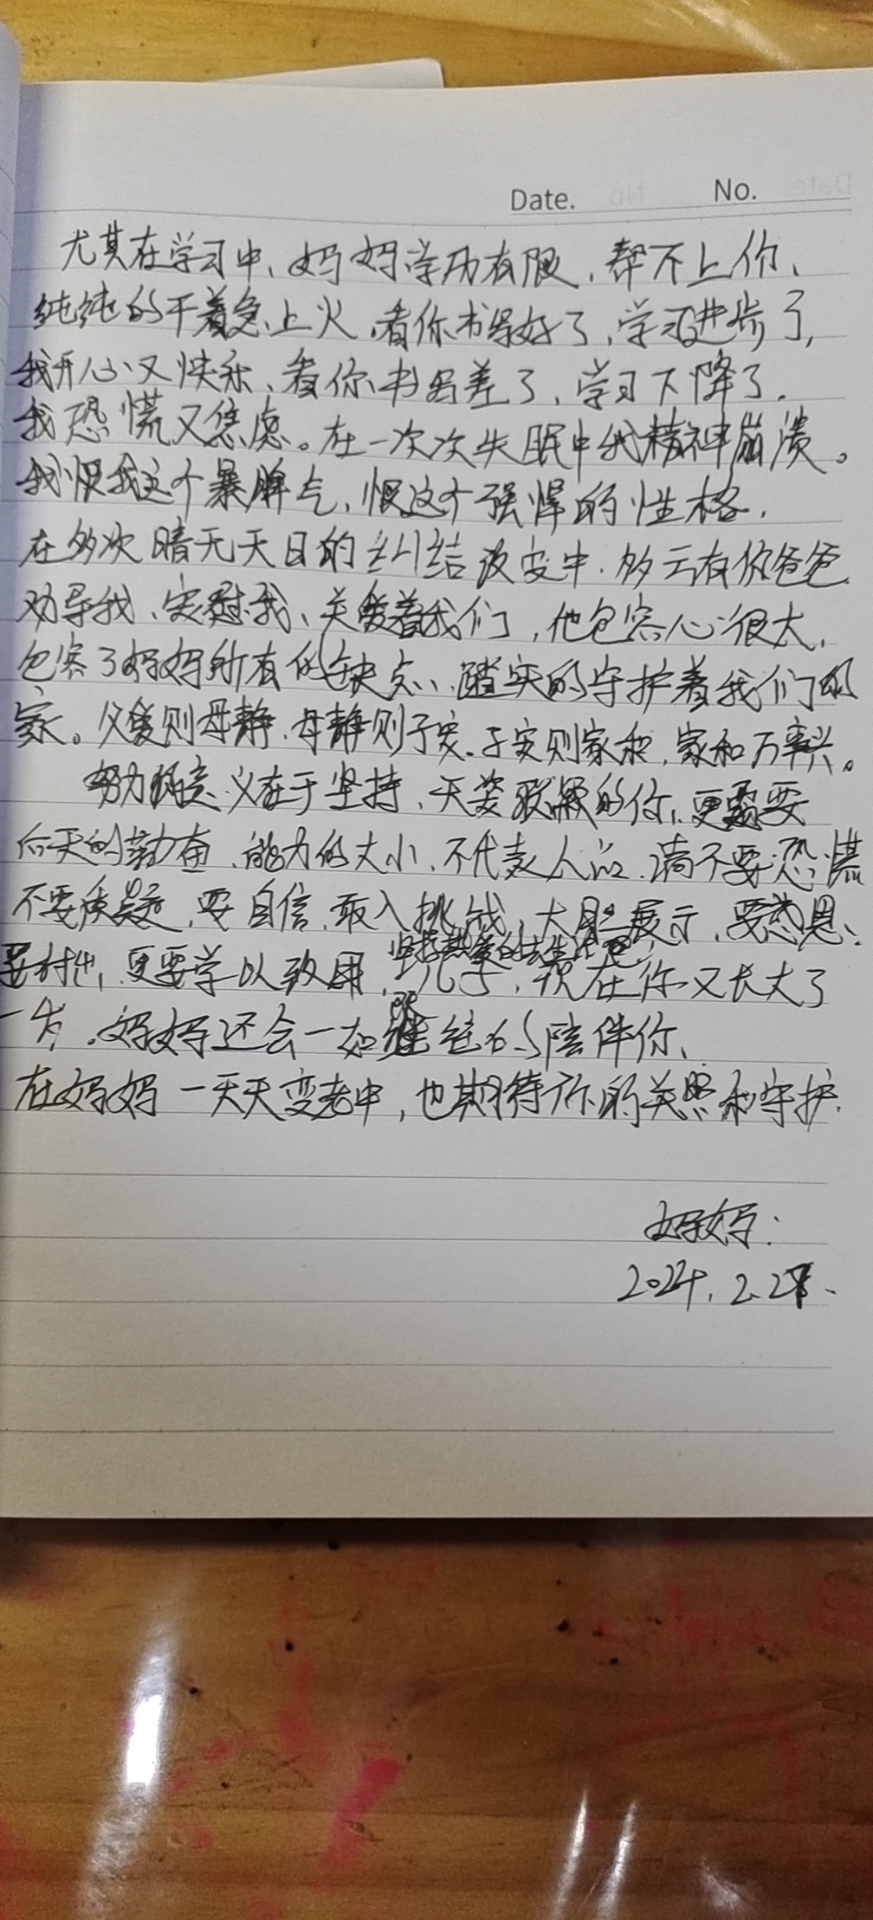 Date. No.
尤其在学习中、妈妈学历有限，帮不上你、
纯纯的干着急、上火，看你书写好了，学习进步了，
我开心又快乐、看你书写差了，学习下降了.
我恐慌又焦虑。在一次次失眠中我精神崩溃。
我恨我这个暴脾气，恨这个强悍的性格.
在多次暗无天日的纠结改变中. 多亏有你爸爸
劝导我、安慰我、关爱着我们，他包容心很大，
包容了妈妈所有的缺点、踏实的守护着我们的
家。父爱则母静、母静则子安、子安则家和，家和万事兴。
努力 意义在于坚持、天姿 的你，更需要
后天的勤奋、能力的大小、不代表人品. 请不要恐慌
不要质疑，要自信，敢入挑战，大胆展示，要感恩、
坚持热爱的去生活
要付出，更要学以致用，儿子，现在你又长大了
一岁，妈妈还会一如既往的陪伴你、
在妈妈一天天变老中，也期待你的关照和守护.
妈妈：